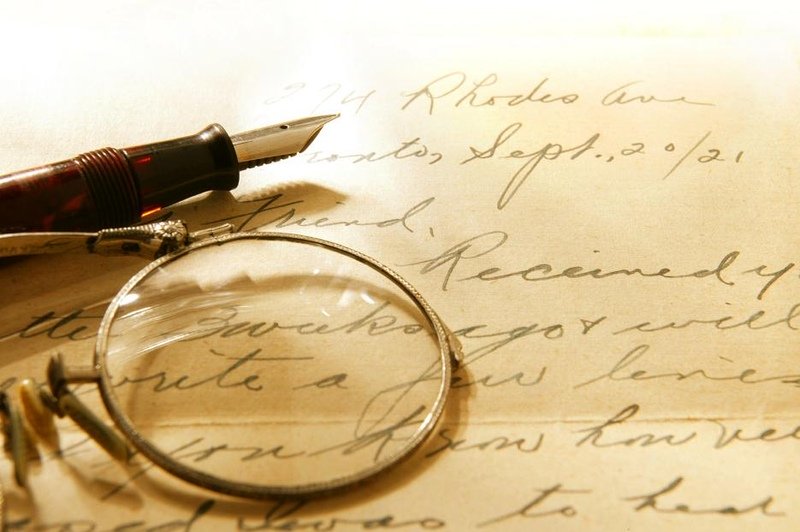 274 Rhodes Ave
ronto, Sept., 20/21
Friend,
Received y
tter 3 weeks ago & will
write a few lines
you know how ve
ased I was to hear